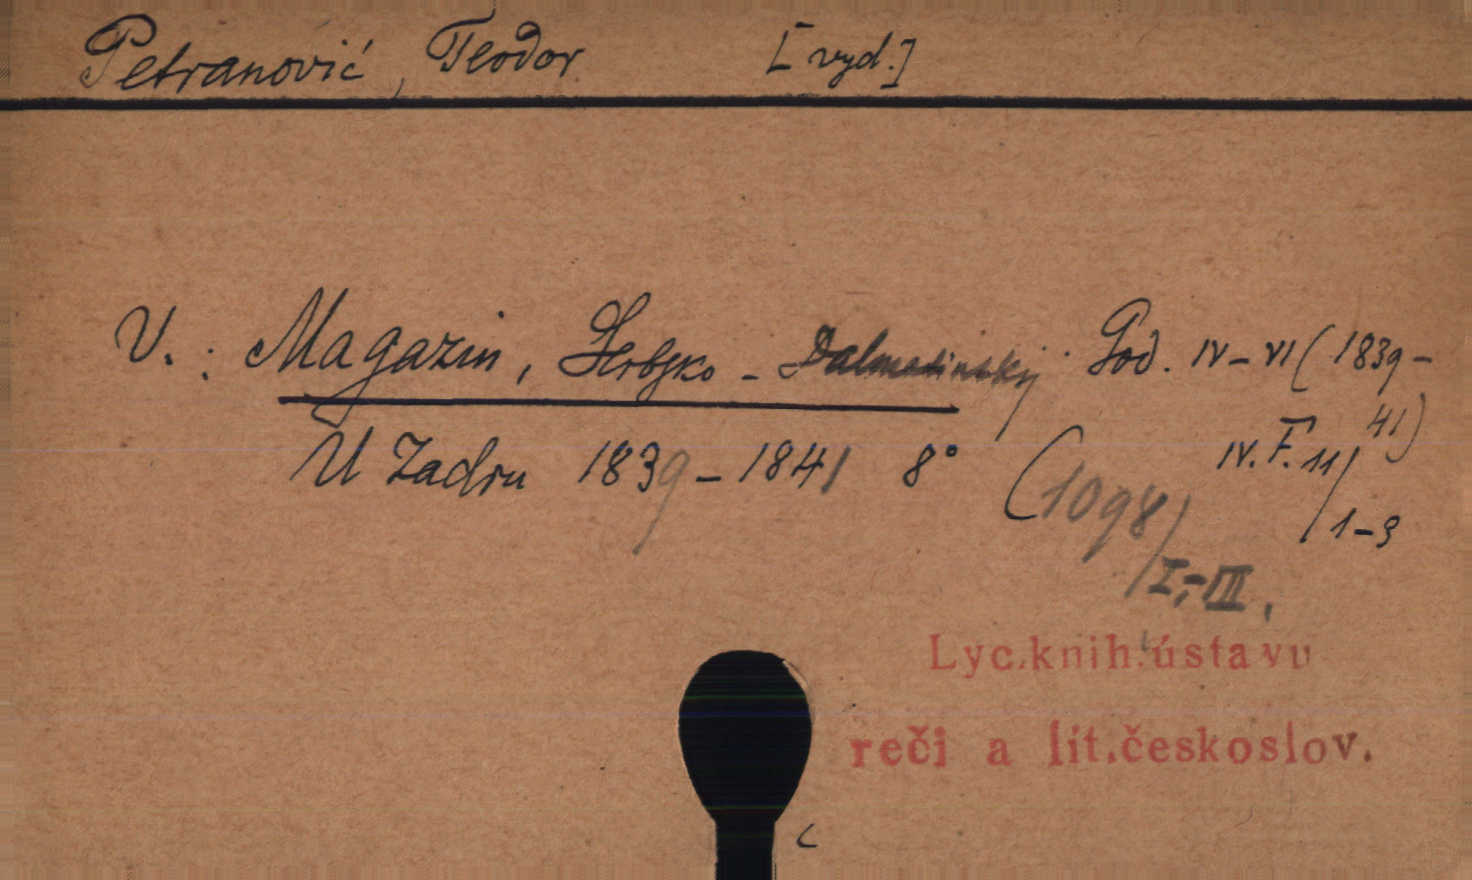 Petranović, Teodor [vyd.]
V.: Magazin, Serbsko-Dalmatinskij. God. IV-VI (1839-41)
U Zadru 1839-1841 8° IV. F. 11/1-3
(1098/I.-III.
Lyc.knih.ústavu
reči a lit.českoslov.